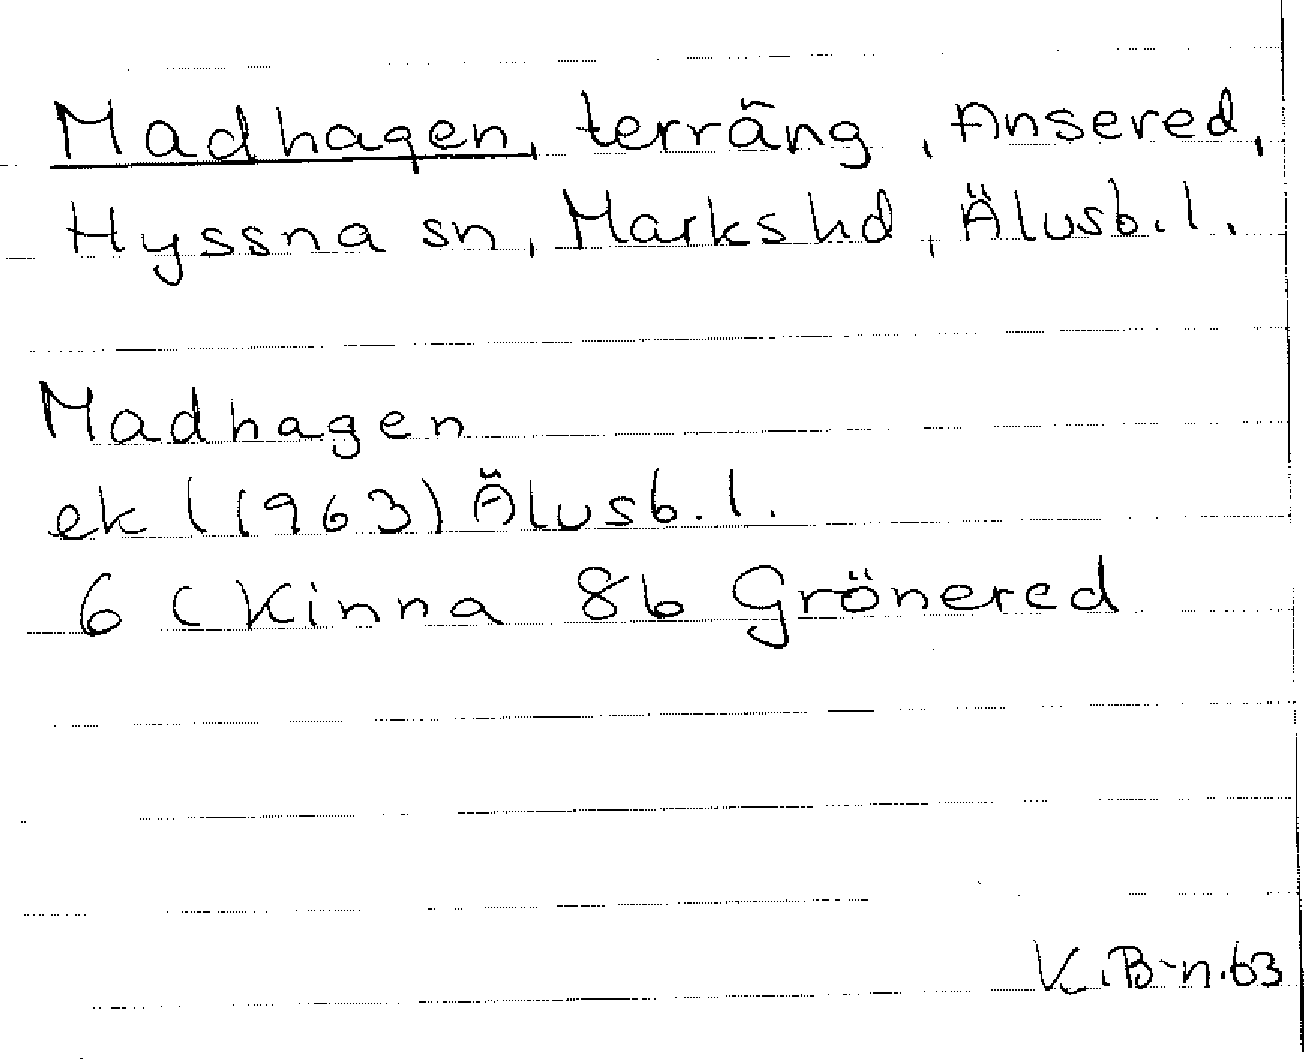 Madhagen, terräng, Ansered,
Hyssna sn, Marks hd, Älvsb. l.
Madhagen
ek (1963) Älvsb. l.
6 C Kinna 8b Grönered
K.B-n.63